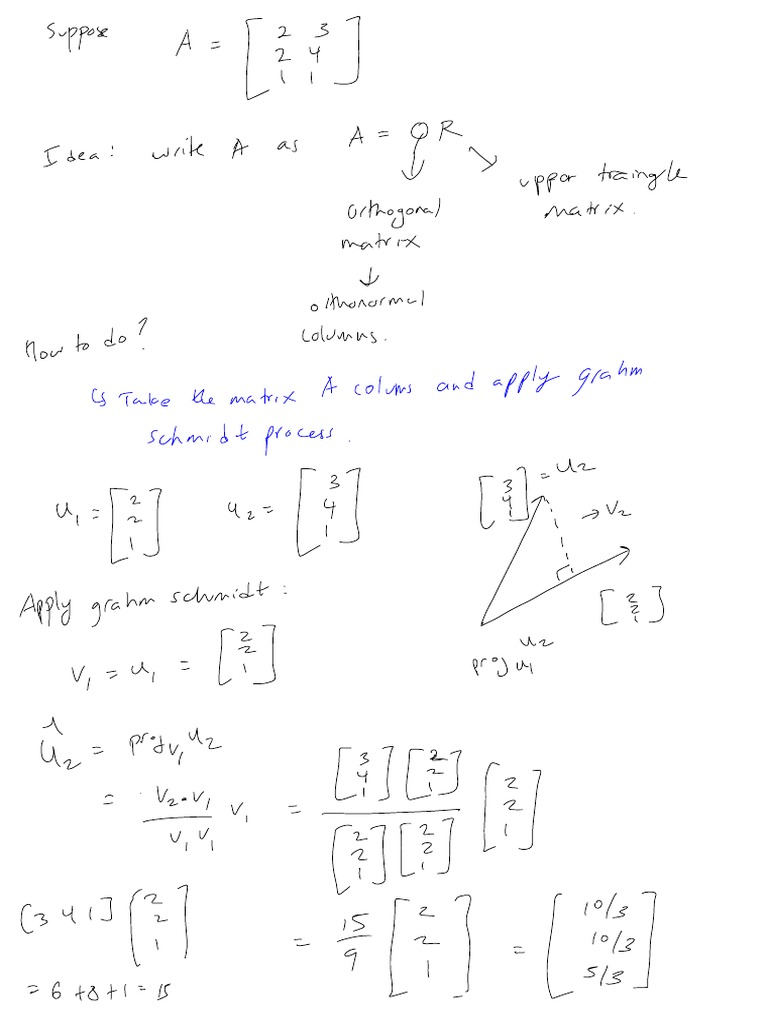 Suppose A = [ 2 3
2 4
1 1 ]
Idea: write A as A = Q R
upper traingle
matrix.
Orthogonal
matrix
↓
orthonormal
columns.
How to do?
↳ Take the matrix A colums and apply grahm
schmidt process.
u₁ = [ 2
2
1 ] u₂ = [ 3
4
1 ]
[ 3
4
1 ] = u₂
→ v₂
[ 2
2
1 ]
u₂
proj u₁
Apply grahm schmidt:
v₁ = u₁ = [ 2
2
1 ]
û₂ = proj v₁ u₂
= v₂ • v₁ / v₁ v₁ v₁ = [ 3
4
1 ] [ 2
2
1 ] / [ 2
2
1 ] [ 2
2
1 ] [ 2
2
1 ]
[3 4 1] [ 2
2
1 ]
= 6 + 8 + 1 = 15
= 15/9 [ 2
2
1 ] = [ 10/3
10/3
5/3 ]